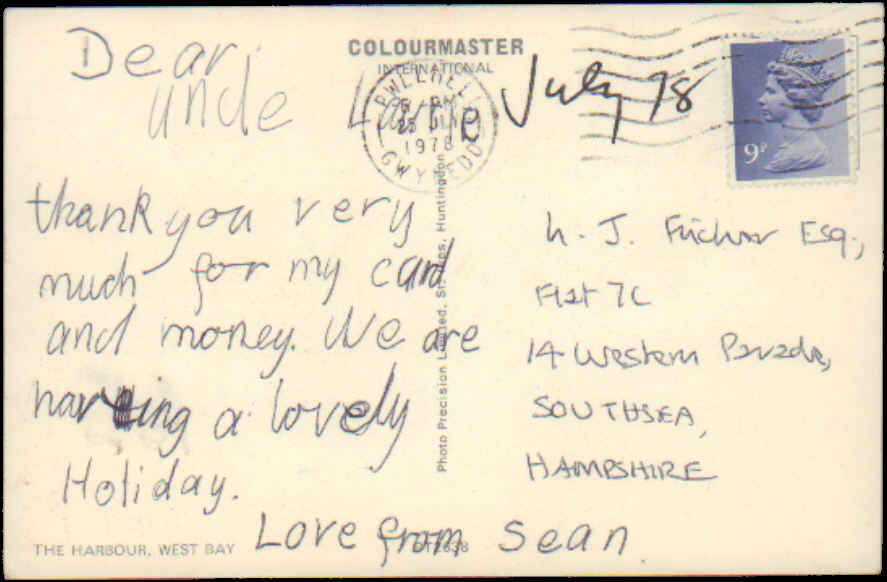 Dear
COLOURMASTER
INTERNATIONAL
uncle
PWLLHELI
5 PM
25 JLY
1978
GWYNEDD
July 78
9P
thank you very
much for my card
and money. We are
having a lovely
Holiday.
Love from Sean
Photo Precision Limited, St. Ives, Huntingdon
L. J. Esq.,
Flat 7C
14 Western Parade,
SOUTHSEA,
HAMPSHIRE
THE HARBOUR, WEST BAY